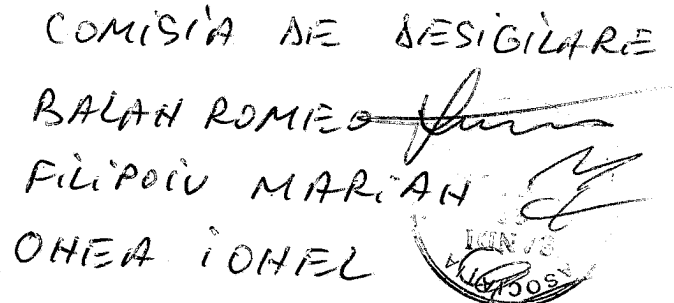 COMISIA DE DESIGILARE
BALAN ROMEO
FILIPOIU MARIAN
ONEA IONEL
ASOCIATIA